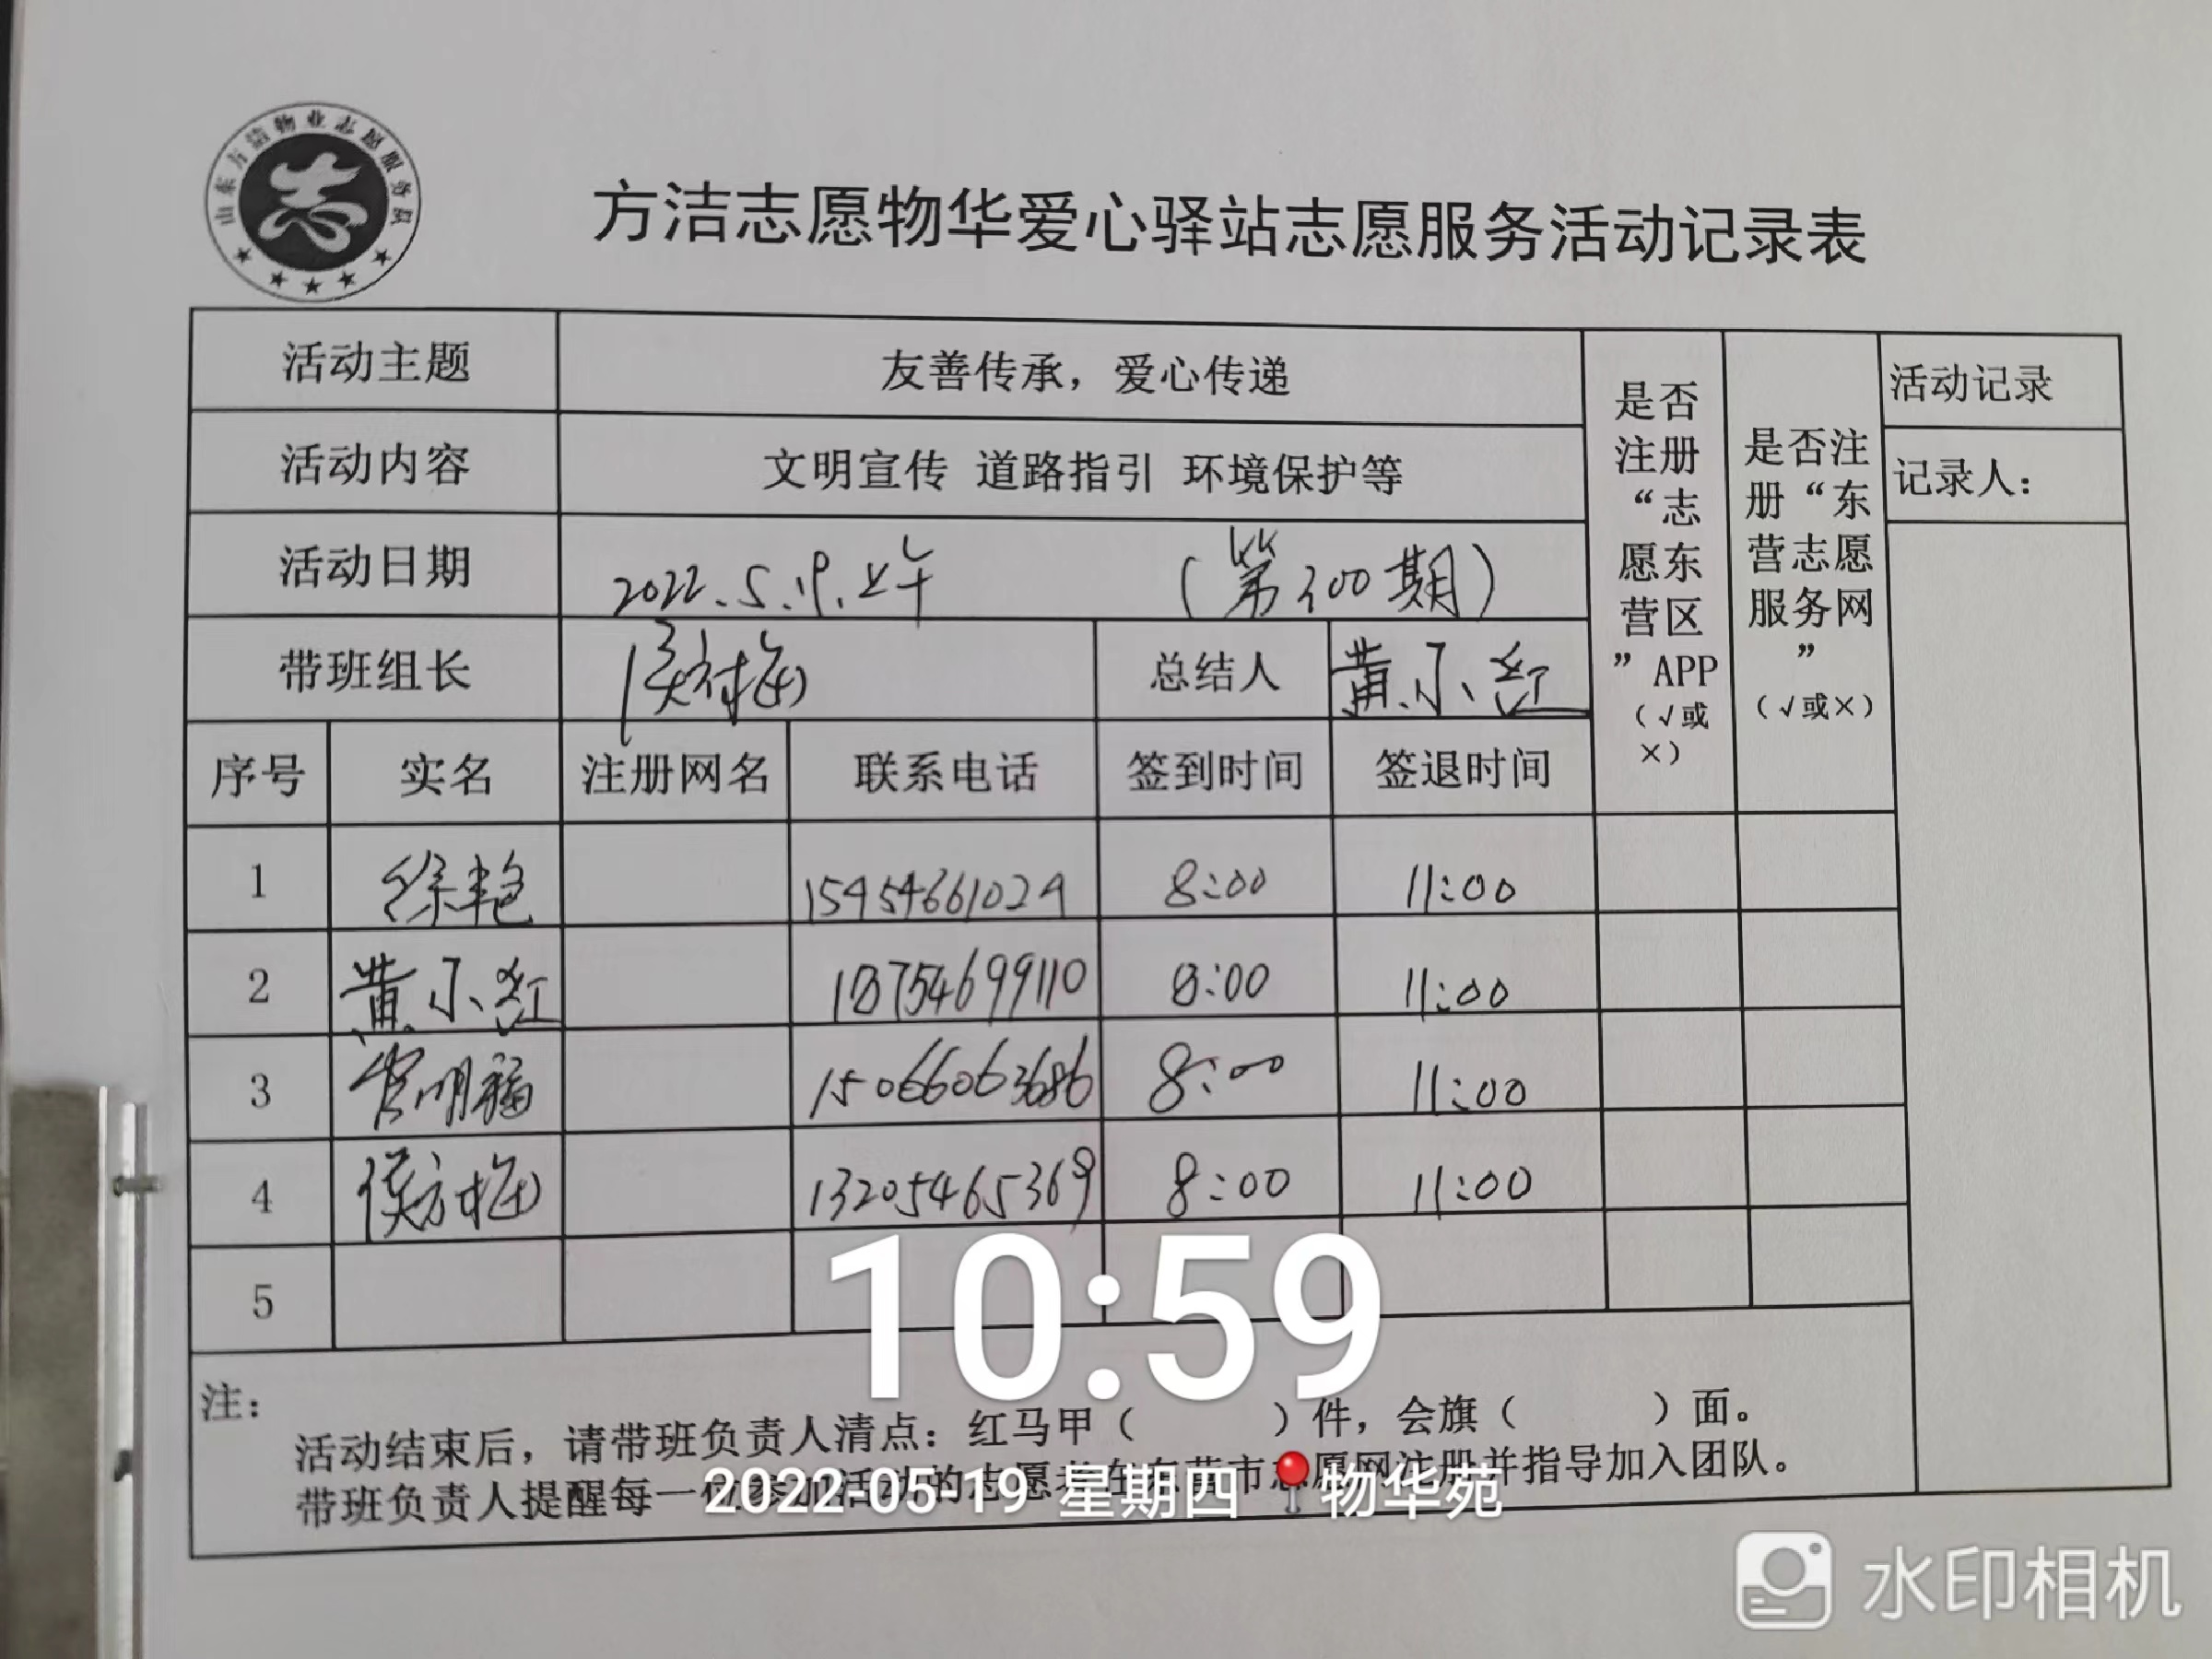 山东方洁物业志愿服务队
志
方洁志愿物华爱心驿站志愿服务活动记录表
活动主题 友善传承，爱心传递
活动内容 文明宣传 道路指引 环境保护等
活动日期 2022.5.19.上午 (第300期)
带班组长 侯树梅 总结人 黄小红
是否
注册
“志
愿东
营区
”APP
(√或
×)
是否注
册“东
营志愿
服务网
”
(√或×)
活动记录
记录人：
序号 实名 注册网名 联系电话 签到时间 签退时间
1 徐艳 8:00 11:00
2 黄小红 18754699110 8:00 11:00
3 明福 15066063686 8:00 11:00
4 侯树梅 13205465369 8:00 11:00
5
注：
活动结束后，请带班负责人清点：红马甲（ ）件，会旗（ ）面。
带班负责人提醒每一位参加活动的志愿者在东营市志愿网注册并指导加入团队。
10:59
2022-05-19 星期四 物华苑
水印相机